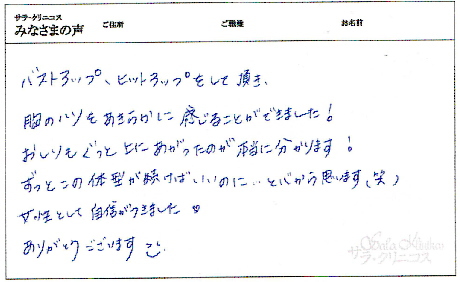 サラ・クリニコス
みなさまの声 ご住所 ご職種 お名前
バストアップ、ヒットアップをして頂き、
胸のハリもあきらかに感じることができました！
おしりもぐっと上にあがったのが本当に分かります！
ずっとこの体型が続けばいいのに…と心から思います(笑)
女性として自信がつきました♡
ありがとうございます
Sala Klinikos
サラ・クリニコス